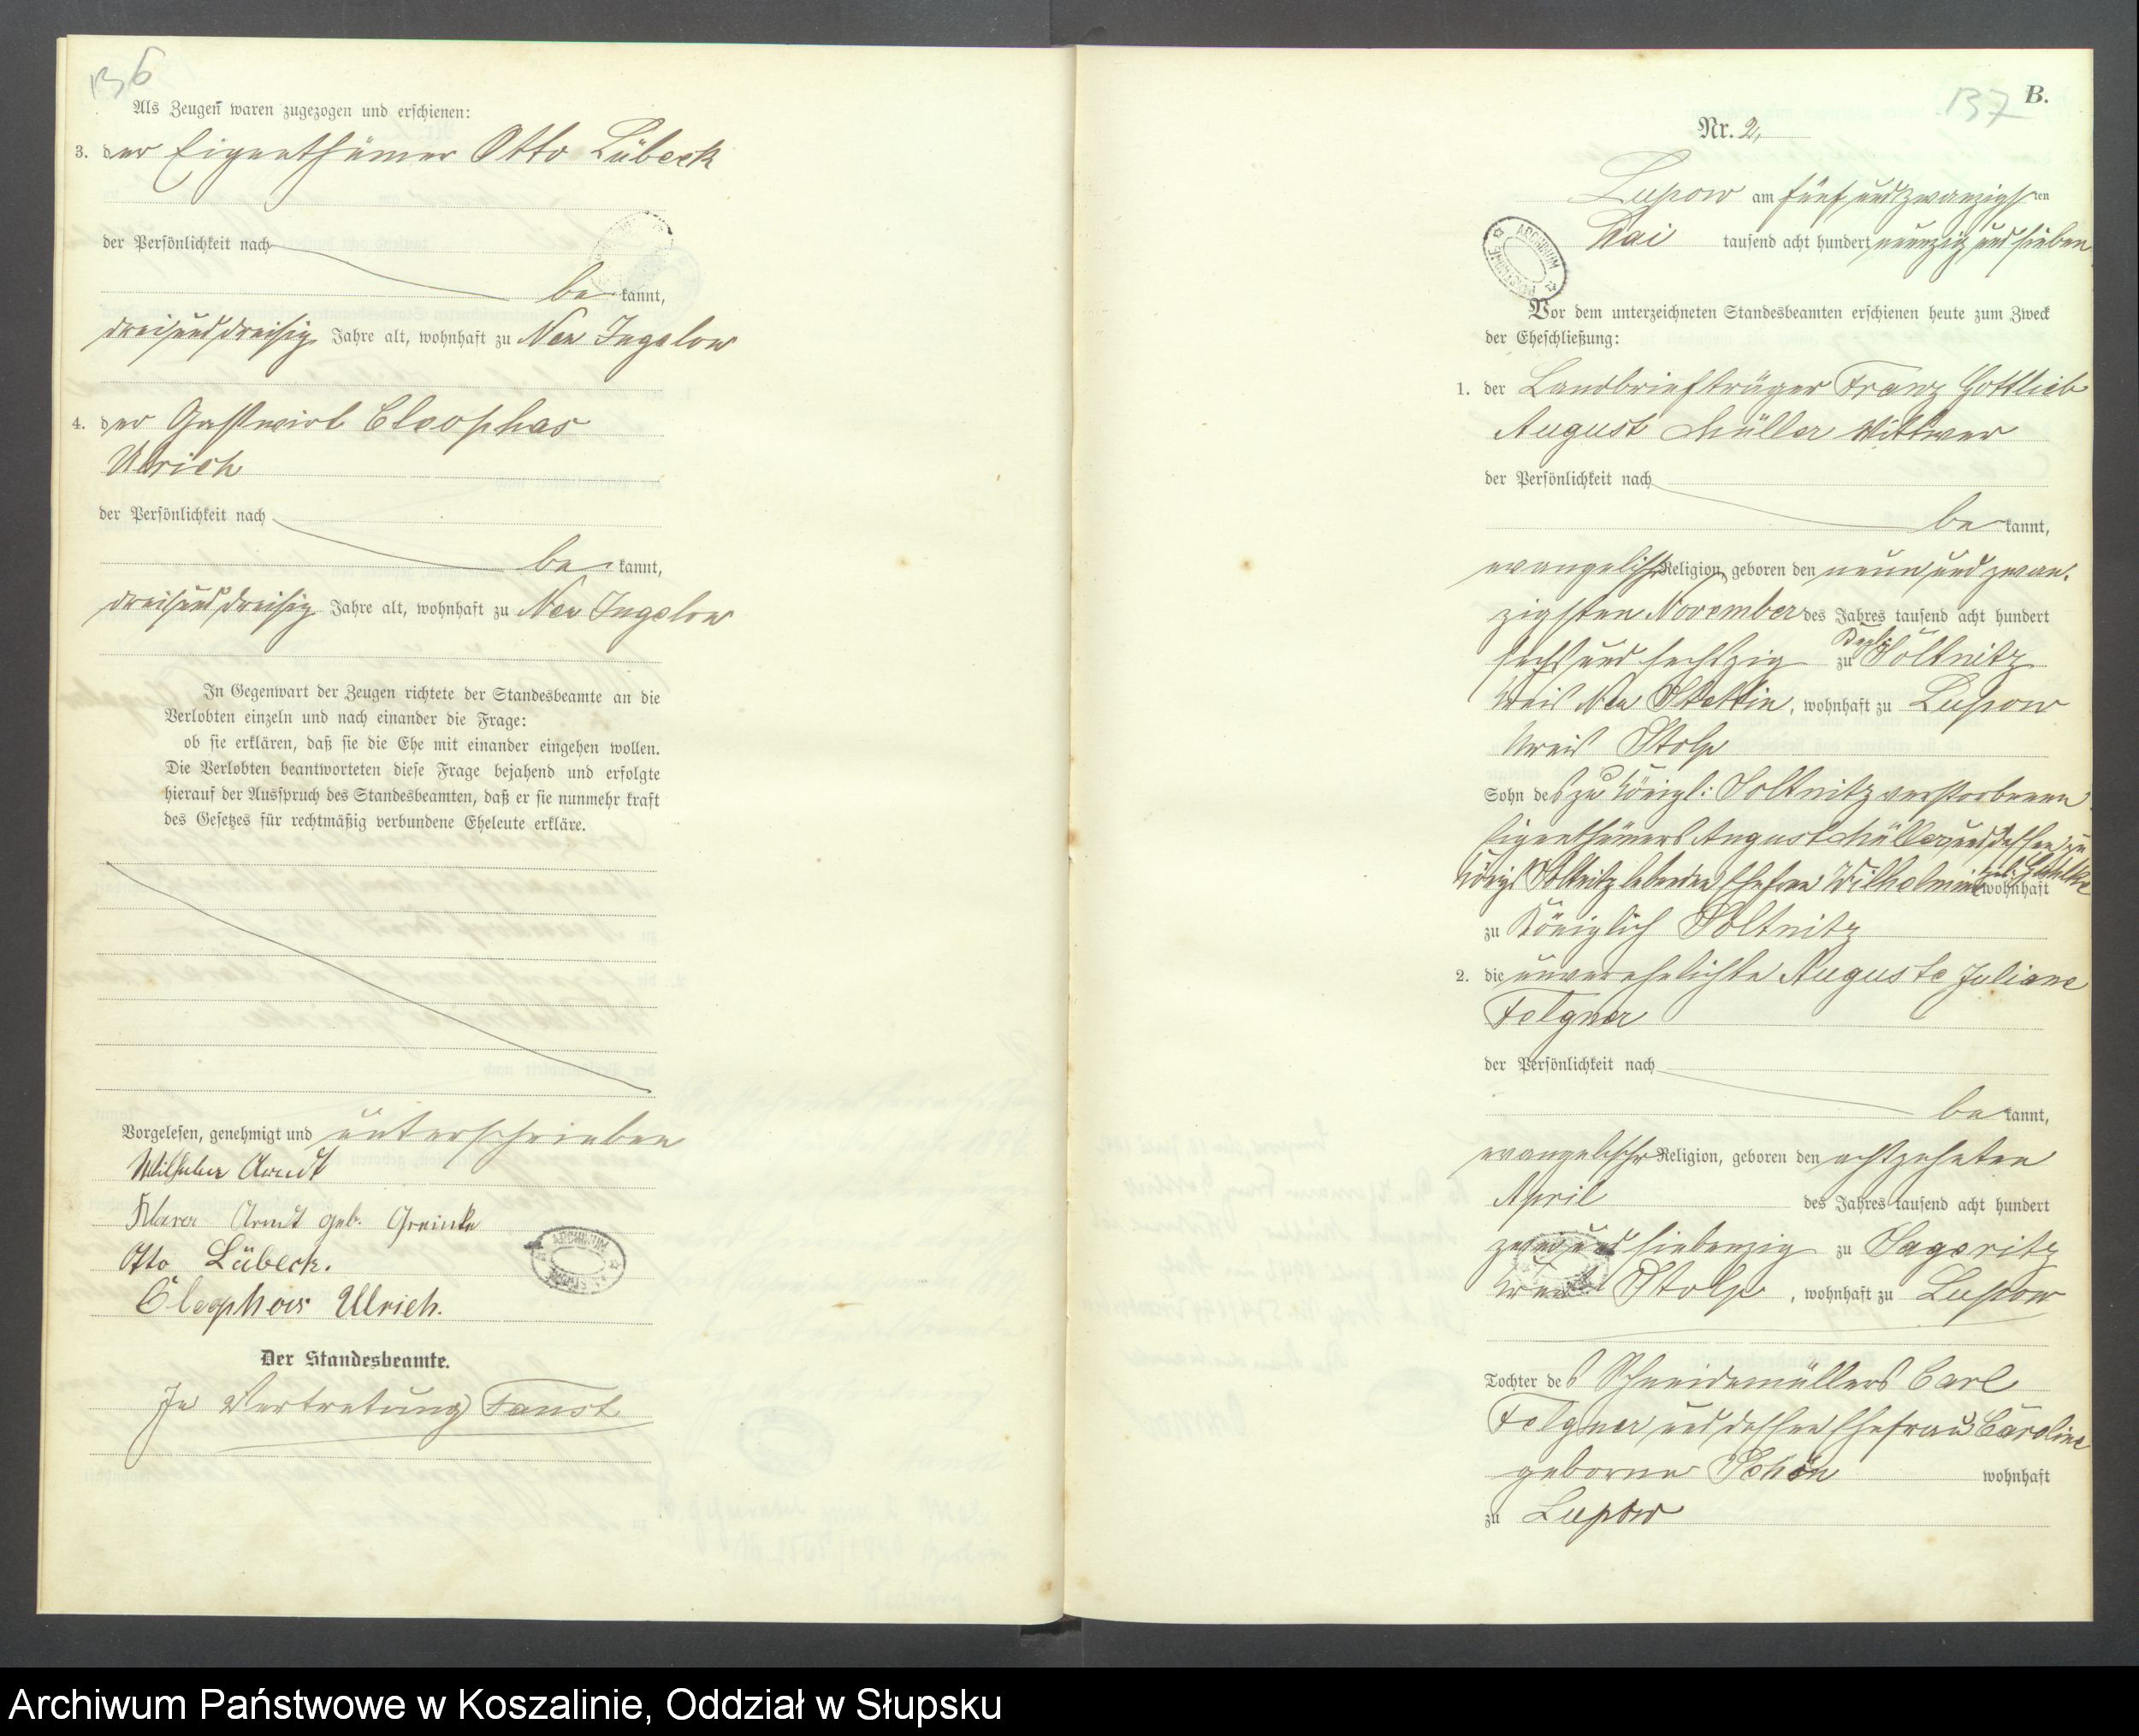 136
Als Zeugen waren zugezogen und erschienen:
3. der Eigenthümer Otto Lübeck
der Persönlichkeit nach
be kannt,
dreiunddreißig Jahre alt, wohnhaft zu Neu Jugelow
4. der Gastwirt Cleophas
Ulrich
der Persönlichkeit nach
be kannt,
dreiunddreißig Jahre alt, wohnhaft zu Neu Jugelow
In Gegenwart der Zeugen richtete der Standesbeamte an die
Verlobten einzeln und nach einander die Frage:
ob sie erklären, daß sie die Ehe mit einander eingehen wollen.
Die Verlobten beantworteten diese Frage bejahend und erfolgte
hierauf der Ausspruch des Standesbeamten, daß er sie nunmehr kraft
des Gesetzes für rechtmäßig verbundene Eheleute erkläre.
Vorgelesen, genehmigt und unterschrieben
Wilhelm Arndt
Klara Arndt geb. Greinke
Otto Lübeck.
Cleophas Ulrich.
Der Standesbeamte.
In Vertretung Faust
137 B.
Nr. 2,
Lupow am fünfundzwanzigsten
Mai tausend acht hundert neunzig und sieben
Vor dem unterzeichneten Standesbeamten erschienen heute zum Zweck
der Eheschließung:
1. der Landbriefträger Franz Gottlieb
August Müller Wittwer
der Persönlichkeit nach
be kannt,
evangelischer Religion, geboren den neunundzwan-
zigsten November des Jahres tausend acht hundert
sechsundsechszig zu Königl: Soltnitz
Kreis Neu Stettin, wohnhaft zu Lupow
Kreis Stolp
Sohn des zu Königl: Soltnitz verstorbenen
Eigenthümers August Müller und dessen zu
Königl Soltnitz lebenden Ehefrau Wilhelmine geb. wohnhaft
zu Königlich Soltnitz
2. die unverehelichte Auguste Juliane
Folgner
der Persönlichkeit nach
be kannt,
evangelischer Religion, geboren den achtzehnten
April des Jahres tausend acht hundert
zweiundsiebenzig zu Sageritz
Kreis Stolp, wohnhaft zu Lupow
Tochter des Schneidemüllers Carl
Folgner und dessen Ehefrau Caroline
geborne Schön wohnhaft
zu Lupow
Archiwum Państwowe w Koszalinie, Oddział w Słupsku